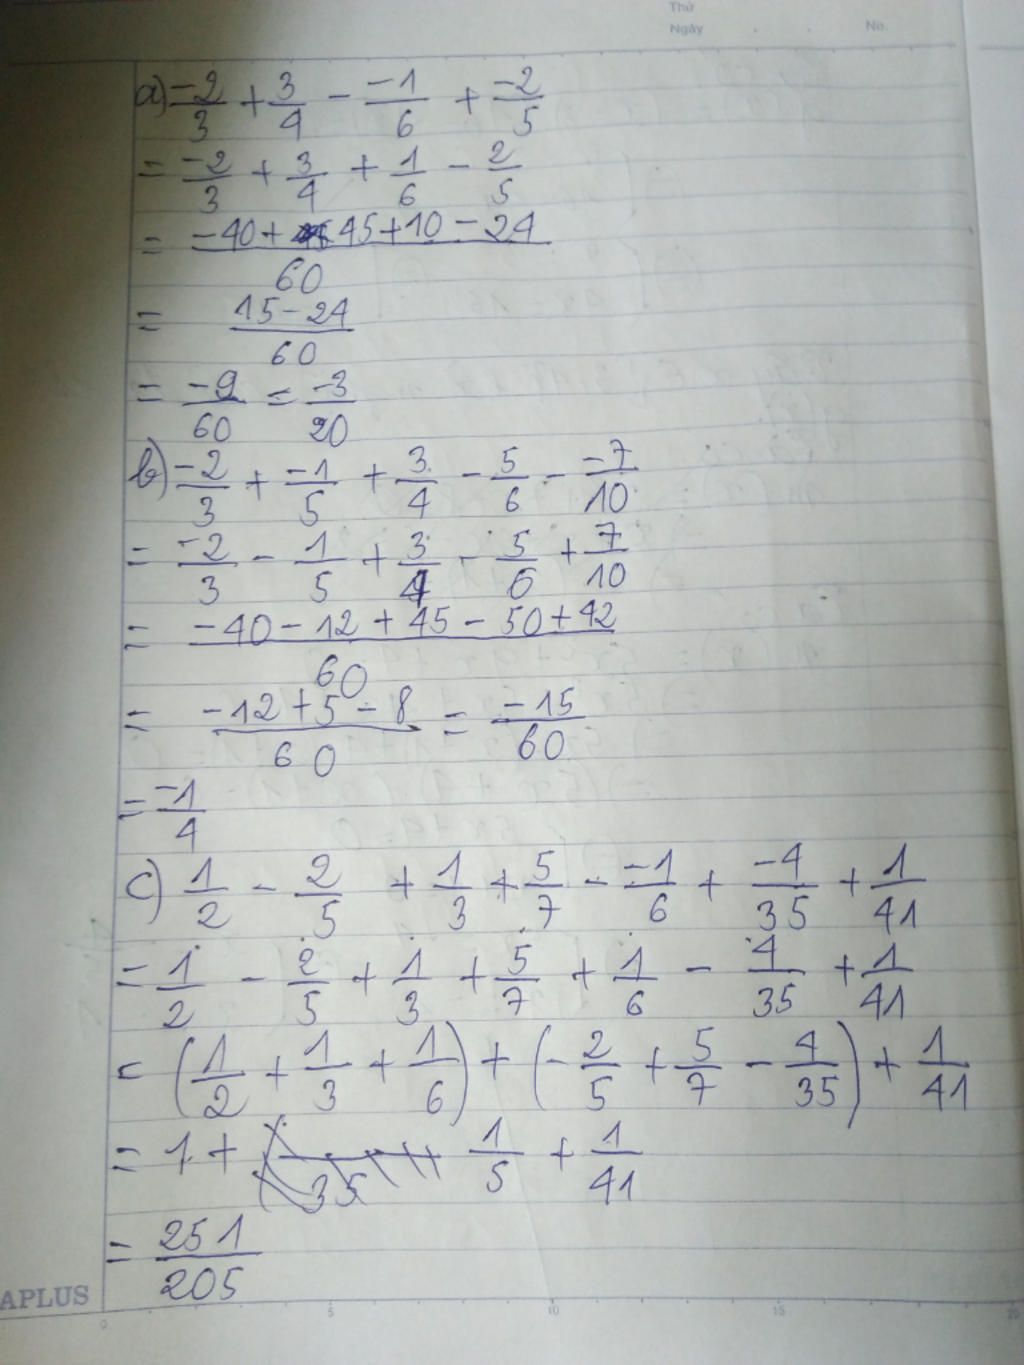 Thứ
Ngày . . No.
a) -2/3 + 3/4 - -1/6 + -2/5
= -2/3 + 3/4 + 1/6 - 2/5
= (-40 + 45 + 10 - 24)/60
= (15 - 24)/60
= -9/60 = -3/20
b) -2/3 + -1/5 + 3/4 - 5/6 - -7/10
= -2/3 - 1/5 + 3/4 - 5/6 + 7/10
= (-40 - 12 + 45 - 50 + 42)/60
= (-12 + 5 - 8)/60 = -15/60
= -1/4
c) 1/2 - 2/5 + 1/3 + 5/7 - -1/6 + -4/35 + 1/41
= 1/2 - 2/5 + 1/3 + 5/7 + 1/6 - 4/35 + 1/41
= (1/2 + 1/3 + 1/6) + (-2/5 + 5/7 - 4/35) + 1/41
= 1 + 1/5 + 1/41
= 251/205
APLUS
0 5 10 15 20